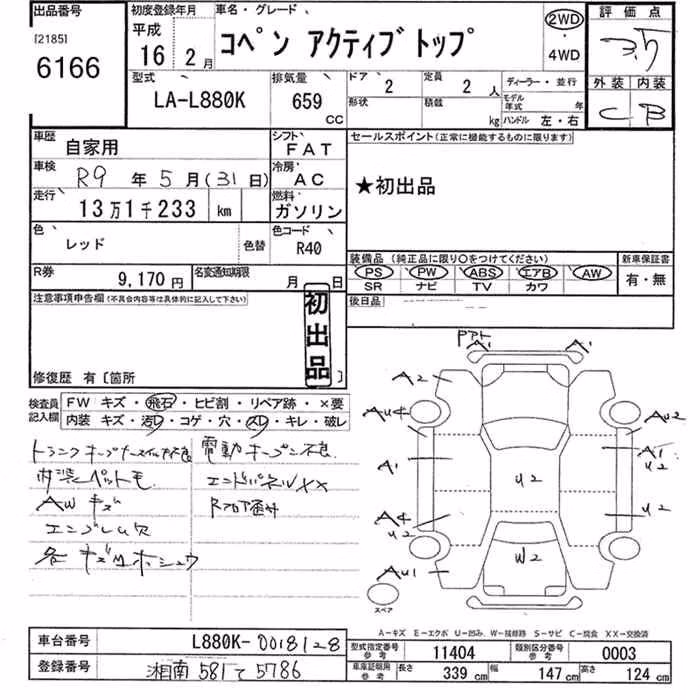 出品番号
[2185]
6166
初度登録年月
平成 16年 2月
車名・グレード
コペン アクティブトップ
2WD
・
4WD
評価点
3.5
外装 内装
C B
型式
LA-L880K
排気量
659 CC
ドア 2
定員 2 人
ディーラー・並行
形状
積載 kg
モデル年式 年
ハンドル 左・右
車歴 自家用
シフト FAT
車検 R9 年 5 月 (31 日)
冷房 AC
走行 13万1千233 km
燃料 ガソリン
色 レッド 色替
色コード R40
R券 9,170 円
名変通知期限 月 日
セールスポイント(正常に機能するものに限ります)
★初出品
装備品(純正品に限り〇をつけてください)
PS PW ABS エアB AW
SR ナビ TV カワ
新車保証書
有・無
後日品
注意事項申告欄(不具合内容等は具体的に記入して下さい)
初出品
修復歴 有〔箇所 〕
検査員記入欄
FW キズ・飛石・ヒビ割・リペア跡・×要
内装 キズ・汚レ・コゲ・穴・スレ・キレ・破レ
電動オープン不良
内装ペット毛
エンドパネルXX
AWキズ
エンブレム欠
A1 A1
A2
AU4
AU2
A1
A1
U2
U2
A4
U2
U2
W2
AU1
スペア
A-キズ E-エクボ U-凹み W-補修跡 S-サビ C-腐食 XX-交換済
車台番号 L880K-0018128
登録番号 湘南 581 て 5786
型式指定番号 参考 11404
類別区分番号 参考 0003
車庫証明用 参考 長さ 339 cm 幅 147 cm 高さ 124 cm